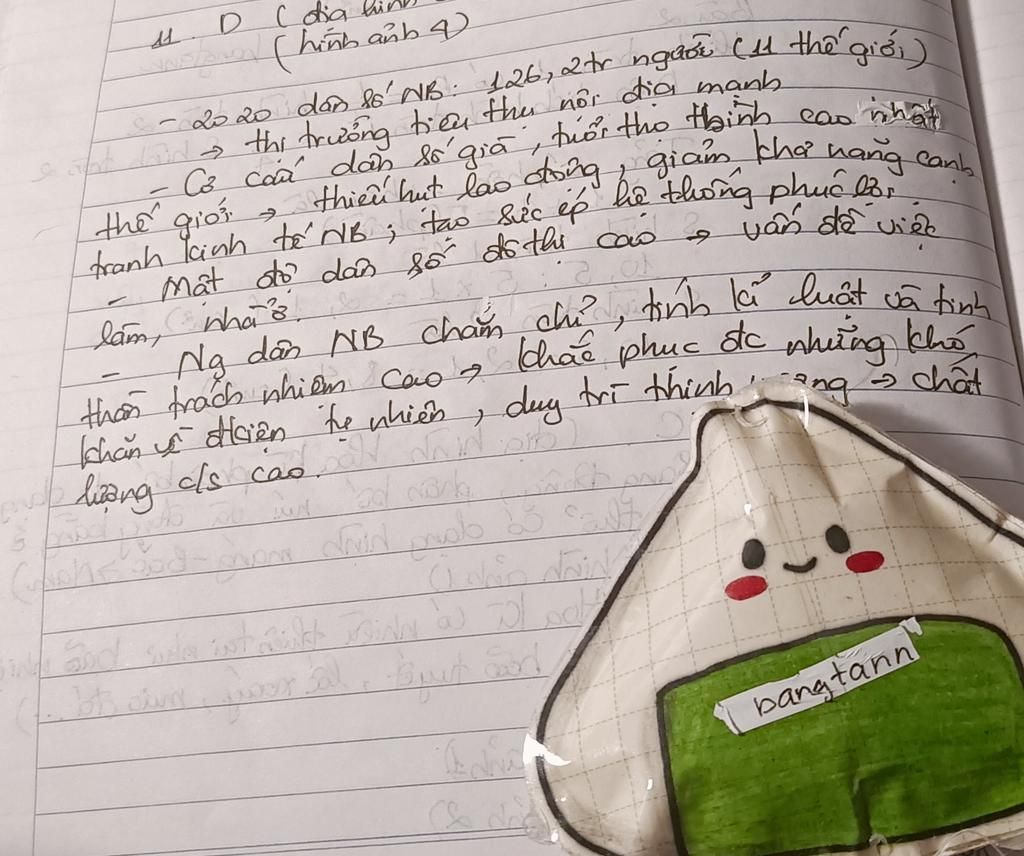 11. D (địa hình
(hình ảnh 4)
- 2020 dân số NB: 126,2tr người (11 thế giới)
→ thị trường tiêu thụ nội địa mạnh
- Cơ cấu dân số già, tuổi thọ tbình cao nhất
thế giới → thiếu hụt lao động, giảm khả năng cạnh
tranh kinh tế NB; tạo sức ép hệ thống phúc lợi
- Mật độ dân số đô thị cao → vấn đề việc
làm, nhà ở.
- Ng dân NB chăm chỉ, tính kỉ luật và tinh
thần trách nhiệm cao → khắc phục đc những khó
khăn về đkiện tự nhiên, duy trì thịnh → chất
lượng c/s cao.
bangtann